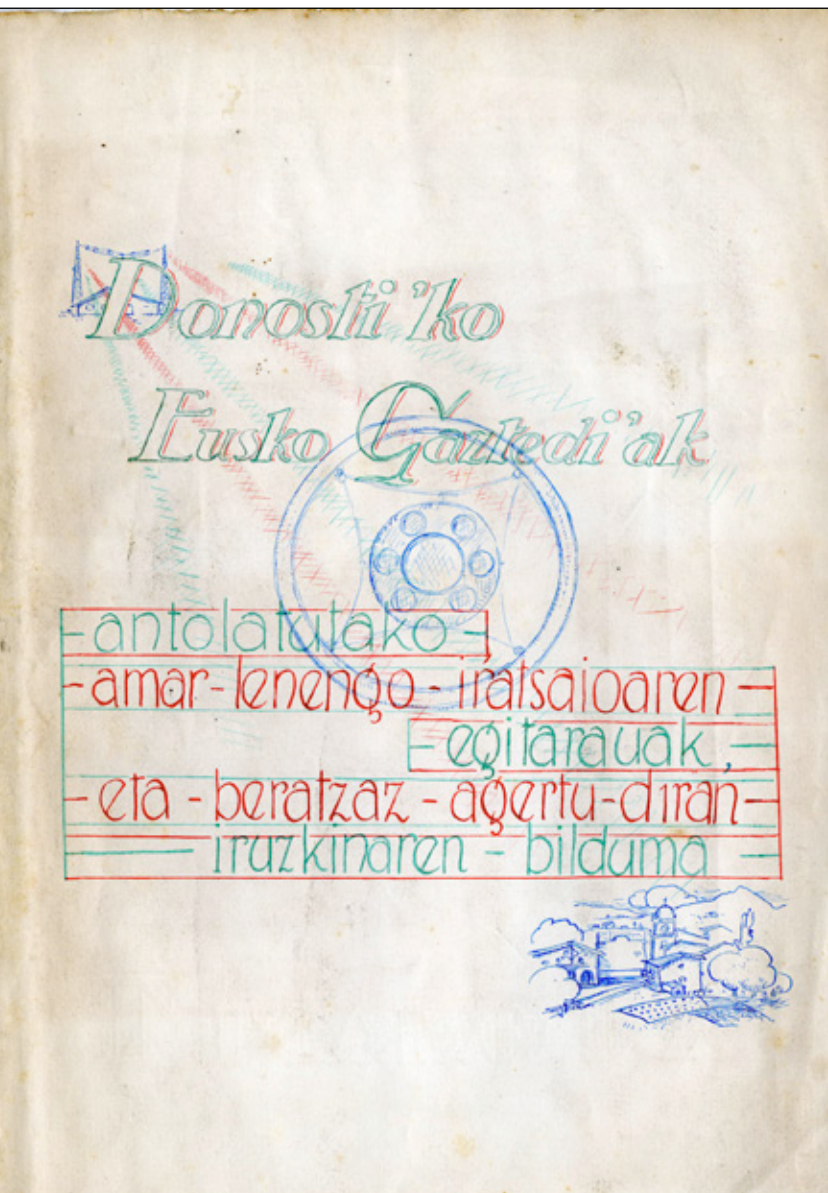 Donosti'ko
Eusko Gaztedi'ak
-antolatutako-
-amar-lenengo-iratsaioaren-
-egitarauak,-
-eta-beratzaz-agertu-diran-
-iruzkinaren-bilduma-